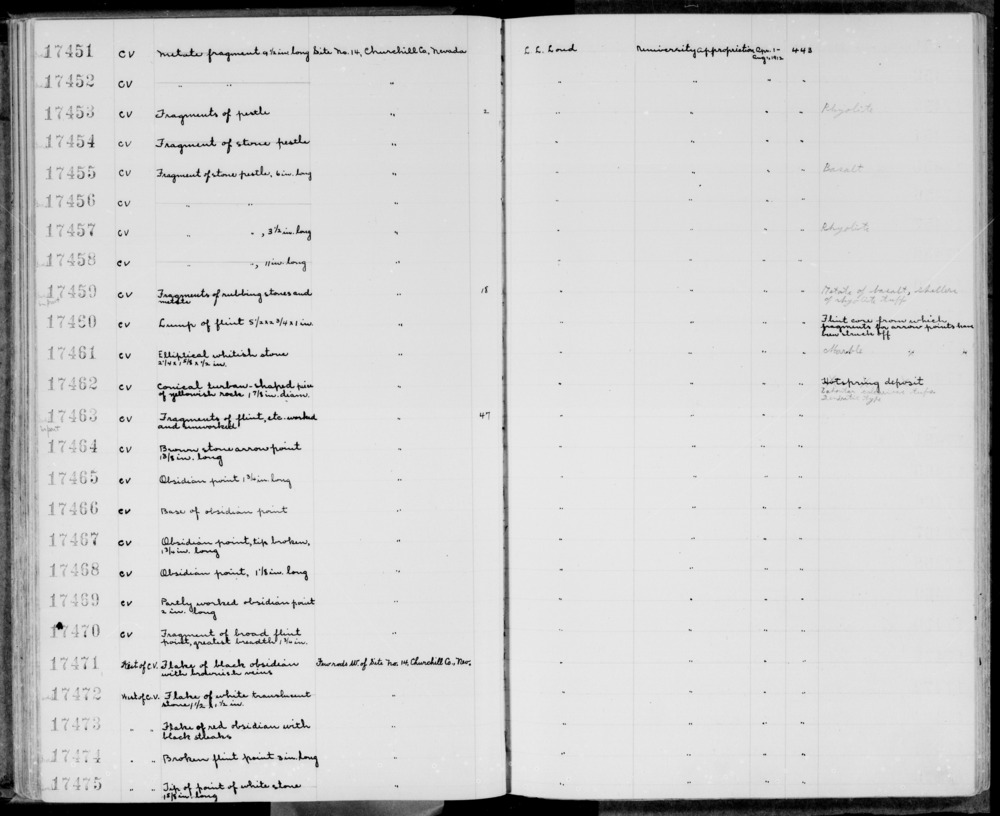 17451 CV Metate fragment 9½ in. long Site No. 14, Churchill Co., Nevada L. L. Loud University appropriation Apr. 1- 443
Aug. 1, 1912
17452 CV " " " " " " "
17453 CV Fragments of pestle " 2 " " " " Rhyolite
17454 CV Fragment of stone pestle " " " " "
17455 CV Fragment of stone pestle, 6 in. long " " " " " Basalt
17456 CV " " " " " " "
17457 CV " ", 3½ in. long " " " " " Rhyolite
17458 CV " ", 11 in. long " " " " "
17459 CV Fragments of rubbing stones and " 18 " " " " Metate of basalt,
metate of rhyolite tuff
17460 CV Lump of flint " " " " " Flint core from which
fragments for arrow points have
been struck off
17461 CV Elliptical whitish stone " " " " " Marble " "
17462 CV Conical turban-shaped piece " " " " " Hotspring deposit
of yellowish rock 1 7/8 in. diam.
17463 CV Fragments of flint, etc. worked " 47 " " " "
and unworked
17464 CV Brown stone arrow point " " " " "
1 3/8 in. long
17465 CV Obsidian point 1 3/4 in. long " " " " "
17466 CV Base of obsidian point " " " " "
17467 CV Obsidian point, tip broken, " " " " "
1 3/4 in. long
17468 CV Obsidian point, 1 1/8 in. long " " " " "
17469 CV Partly worked obsidian point " " " " "
2 in. long
17470 CV Fragment of broad flint " " " " "
point, greatest breadth 1 1/4 in.
17471 West of C.V. Flake of black obsidian Few rods W. of Site No. 14, Churchill Co., Nev. " " " "
with brownish veins
17472 West of C.V. Flake of white translucent " " " " "
stone, 1½ x 1½ in.
17473 " " Flake of red obsidian with " " " " "
black streaks
17474 " " Broken flint point 3 in. long " " " " "
17475 " " Tip of point of white stone " " " " "
in. long